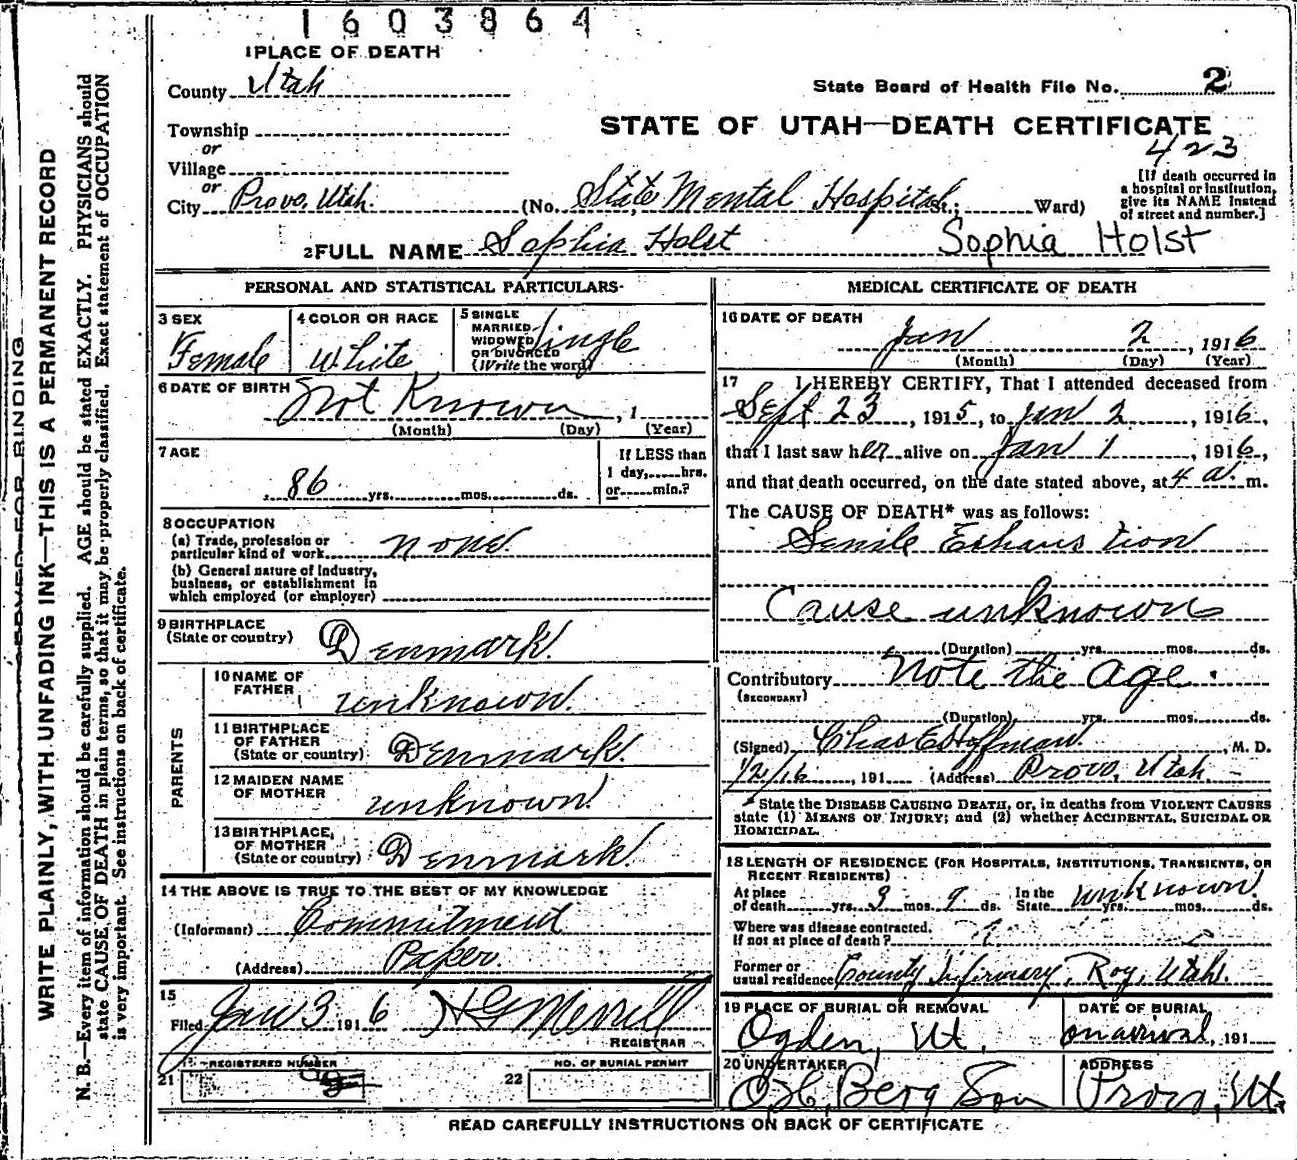 1603864
1 PLACE OF DEATH
County Utah
State Board of Health File No. 2
Township
or
STATE OF UTAH—DEATH CERTIFICATE
423
Village
or
City Provo, Utah. (No. State Mental Hospital St.; Ward)
[If death occurred in
a hospital or institution,
give its NAME instead
of street and number.]
2 FULL NAME Sophia Holst Sophia Holst
PERSONAL AND STATISTICAL PARTICULARS
3 SEX
Female
4 COLOR OR RACE
White
5 SINGLE
MARRIED
WIDOWED
OR DIVORCED
(Write the word)
Single
6 DATE OF BIRTH
Not Known , 1
(Month) (Day) (Year)
7 AGE
86 yrs. mos. ds.
If LESS than
1 day, hrs.
or min.?
8 OCCUPATION
(a) Trade, profession or
particular kind of work none.
(b) General nature of Industry,
business, or establishment in
which employed (or employer)
9 BIRTHPLACE
(State or country) Denmark.
PARENTS
10 NAME OF
FATHER unknown.
11 BIRTHPLACE
OF FATHER
(State or country) Denmark.
12 MAIDEN NAME
OF MOTHER unknown.
13 BIRTHPLACE
OF MOTHER
(State or country) Denmark.
14 THE ABOVE IS TRUE TO THE BEST OF MY KNOWLEDGE
(Informant) Commitment
(Address) Paper.
15
Filed Jan 3 1916 H G Merrill
REGISTRAR
REGISTERED NUMBER
21
NO. OF BURIAL PERMIT
22
MEDICAL CERTIFICATE OF DEATH
16 DATE OF DEATH
Jan 2, 1916
(Month) (Day) (Year)
17 I HEREBY CERTIFY, That I attended deceased from
Sept 23, 1915, to Jan 2, 1916,
that I last saw her alive on Jan 1, 1916,
and that death occurred, on the date stated above, at 4 a. m.
The CAUSE OF DEATH* was as follows:
Senile Exhaustion
Cause unknown
(Duration) yrs. mos. ds.
Contributory Note the age.
(SECONDARY)
(Duration) yrs. mos. ds.
(Signed) Chas E Hoffman. , M. D.
1/2/16 , 191 (Address) Provo, Utah.
* State the DISEASE CAUSING DEATH, or, in deaths from VIOLENT CAUSES
state (1) MEANS OF INJURY; and (2) whether ACCIDENTAL, SUICIDAL OR
HOMICIDAL.
18 LENGTH OF RESIDENCE (FOR HOSPITALS, INSTITUTIONS, TRANSIENTS, OR
RECENT RESIDENTS)
At place
of death yrs. 3 mos. 9 ds. In the
State unknown yrs. mos. ds.
Where was disease contracted,
if not at place of death?
Former or
usual residence County Infirmary, Roy, Utah.
19 PLACE OF BURIAL OR REMOVAL
Ogden, Ut.
DATE OF BURIAL
on arrival, 191
20 UNDERTAKER
Berg Son
ADDRESS
Provo, Ut.
READ CAREFULLY INSTRUCTIONS ON BACK OF CERTIFICATE
FOR BINDING
WRITE PLAINLY, WITH UNFADING INK—THIS IS A PERMANENT RECORD
N. B.—Every item of information should be carefully supplied. AGE should be stated EXACTLY. PHYSICIANS should
state CAUSE OF DEATH in plain terms, so that it may be properly classified. Exact statement of OCCUPATION
is very important. See instructions on back of certificate.